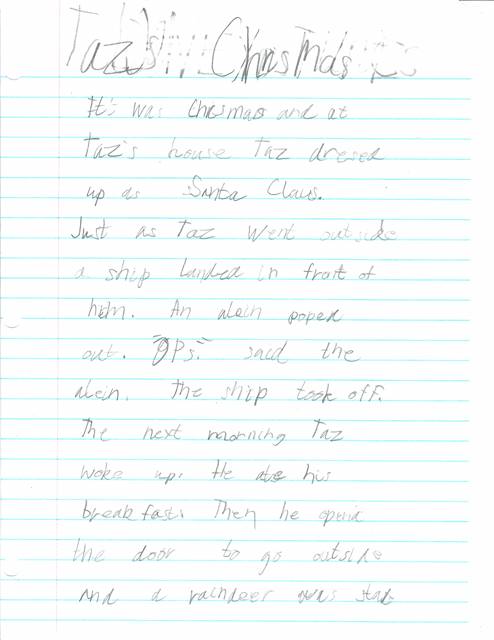 Taz's Christmas
It's was Chrismas and at
Taz's house Taz dresed
up as Santa Claus.
Just as Taz went outside
a ship landed in fratt of
him. An alein poped
out. "OPs." said the
alein. The ship took off.
The next morning Taz
woke up. He ate his
breakfast. Then he
the door to go outside
and a raindeer was